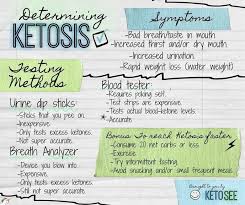 Determining
KETOSIS
Symptoms
-Bad breath/taste in mouth
-Increased thirst and/or dry mouth
-Increased urination.
-Rapid weight loss (water weight)
Testing
Methods
Urine dip sticks:
-Sticks that you pee on.
-Inexpensive
-Only tests excess ketones.
-Not super accurate.
Breath Analyzer
-Device you blow into.
-Expensive
-Only tests excess ketones
-Not super accurate.
Blood tester:
-Requires poking self.
-Test strips are expensive.
-Tests actual blood ketones
*Accurate.
Bonus To reach Ketosis faster
-Consume 20 net carbs or less.
-Exercise
-Try intermittent fasting
-Avoid snacking and/or small frequent meals
Brought to you by
KETOSEE